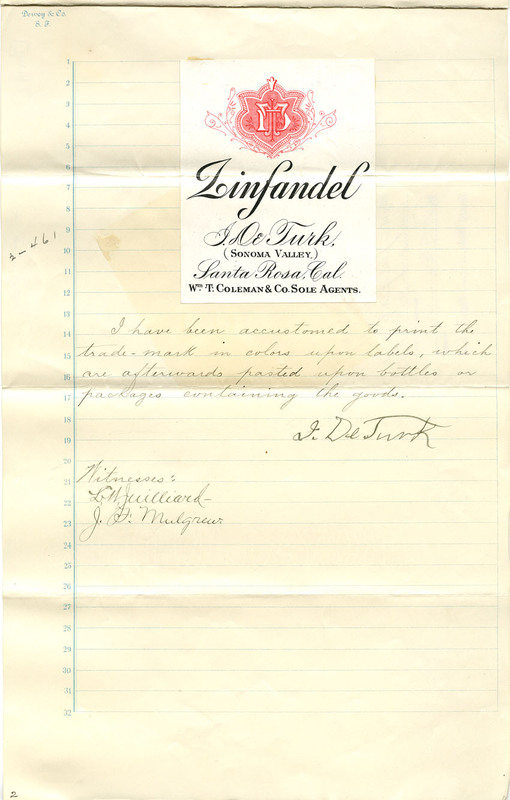 Dewey & Co.
S. F.
1
2
3
4
5
6
7
8
9
10
11
12
13
14
15
16
17
18
19
20
21
22
23
24
25
26
27
28
29
30
31
32
Zinfandel
I. De Turk.
(SONOMA VALLEY.)
Santa Rosa, Cal.
Wm. T. COLEMAN & CO. SOLE AGENTS.
I have been accustomed to print the
trade-mark in colors upon labels, which
are afterwards pasted upon bottles or
packages containing the goods.
I. De Turk
Witnesses:
L. W. Juilliard
J. F. Mulgrew.
2